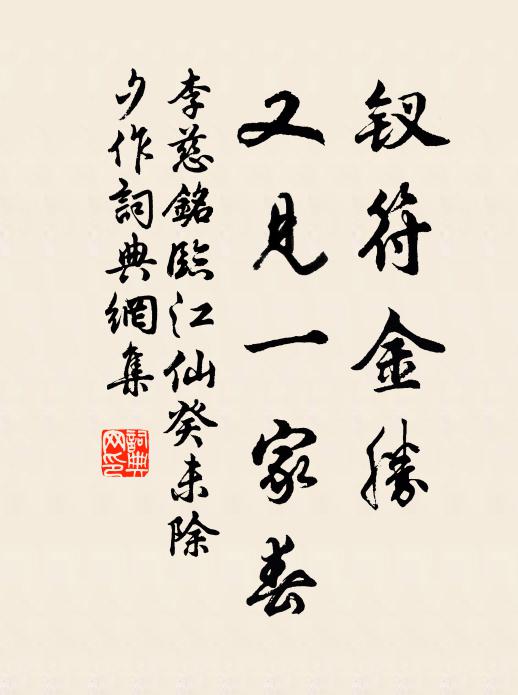 钗符金勝
又見一家春
李慈銘臨江仙癸未除
夕作詞典網集
詞典網印